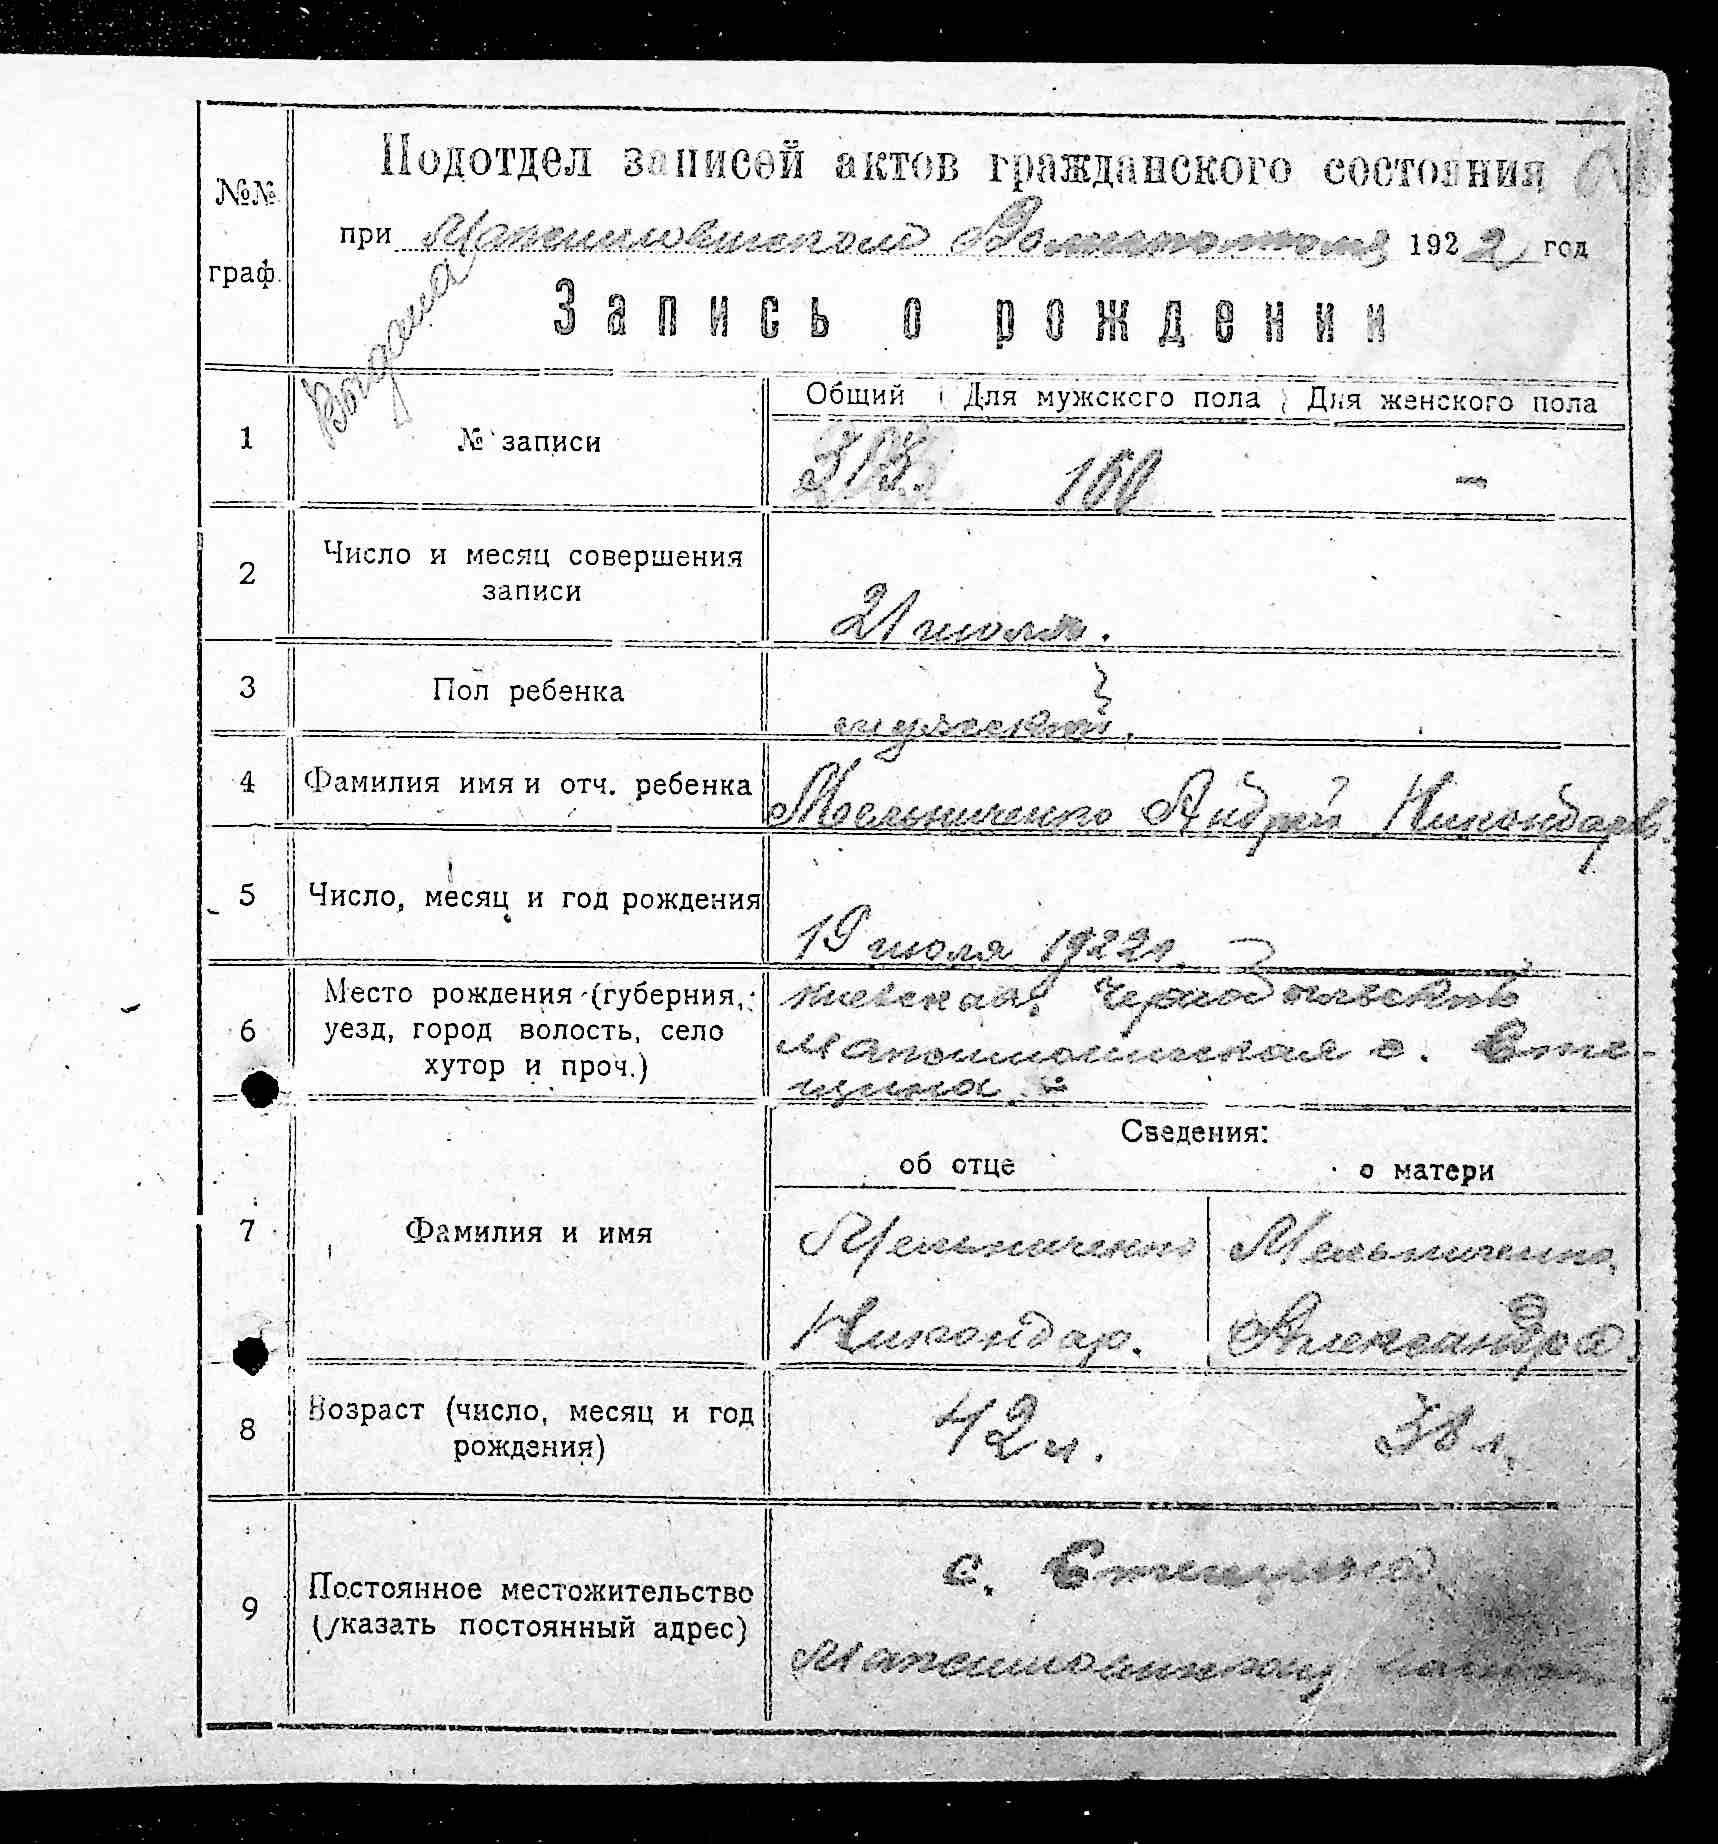 Подотдел записей актов гражданского состояния
при Максимовическом Волисполкоме 1922 год
Запись о рождении
№№ граф.
Общий Для мужского пола Для женского пола
1 № записи 313 160 -
2 Число и месяц совершения
записи
21 июля.
3 Пол ребенка
мужской.
4 Фамилия имя и отч. ребенка Мельниченко Андрий Никондаров.
5 Число, месяц и год рождения
19 июля 1922 г.
6 Место рождения (губерния,
уезд, город волость, село
хутор и проч.)
Киевская, Чернобыльский
Максимовическая с. Сте-
щина.
Сведения:
об отце о матери
7 Фамилия и имя
Мельниченко Мельниченко
Никондар. Александра.
8 Возраст (число, месяц и год
рождения)
42 л. 38 л.
9 Постоянное местожительство
(указать постоянный адрес)
с. Стещина
Максимовическая